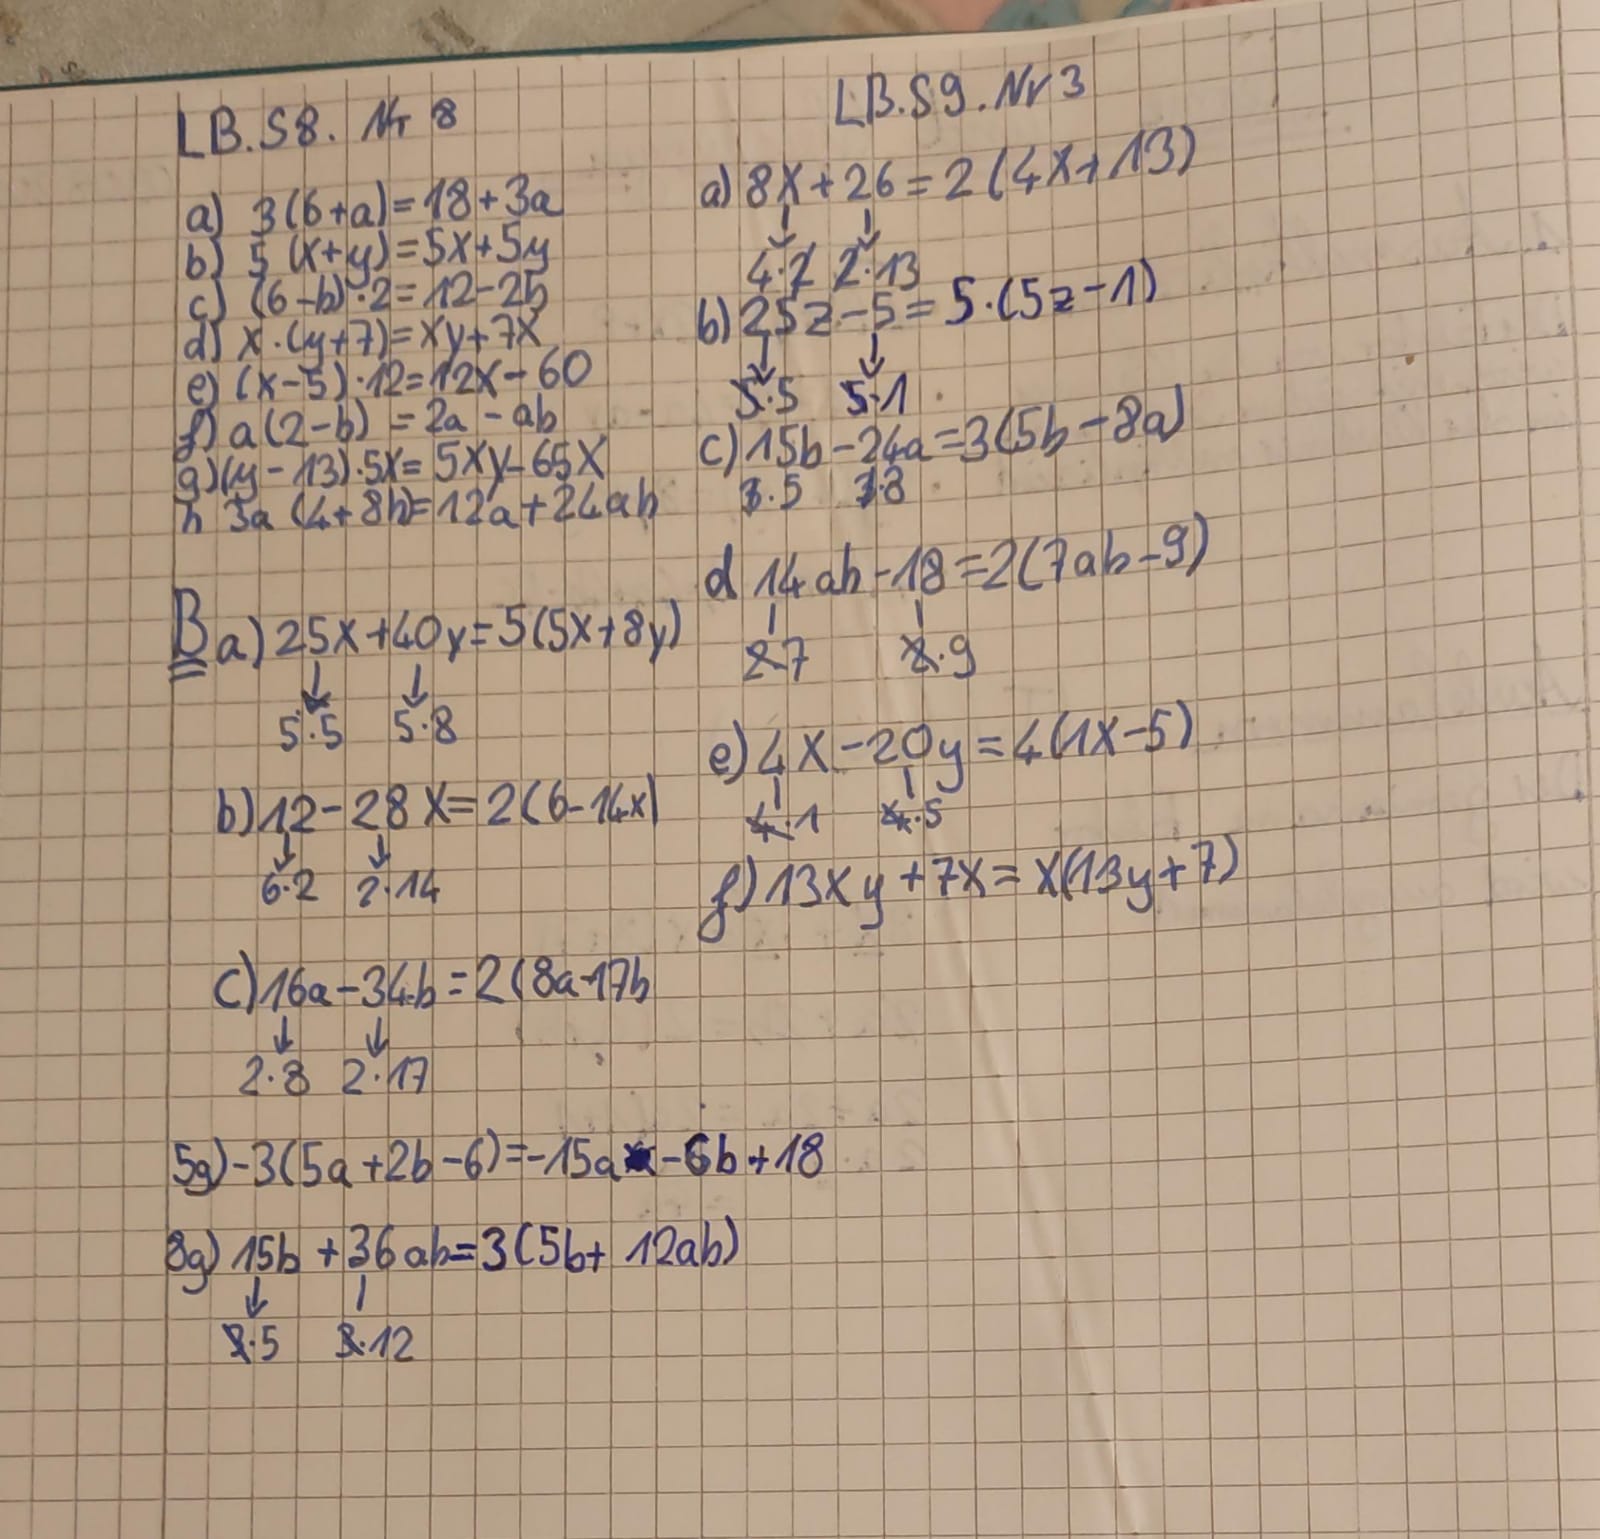 LB.S8. Nr 8
a) 3(6+a)=18+3a
b) 5 (x+y)=5x+5y
c) (6-b)·2=12-2b
d) x·(y+7)=xy+7x
e) (x-5)·12=12x-60
f) a(2-b) = 2a-ab
g) (y-13)·5x=5xy-65x
h 3a (4+8b)=12a+24ab
B a) 25x+40y=5(5x+8y)
5·5 5·8
b) 12-28x=2(6-14x)
6·2 2·14
c) 16a-34b=2(8a-17b
2·8 2·17
5g) -3(5a+2b-6)=-15a-6b+18
8g) 15b+36ab=3(5b+12ab)
3·5 3·12
LB.S9.Nr 3
a) 8x+26=2(4x+13)
4·2 2·13
b) 25z-5=5·(5z-1)
5·5 5·1
c) 15b-24a=3(5b-8a)
3·5 3·8
d 14ab-18=2(7ab-9)
2·7 2·9
e) 4x-20y=4(1x-5)
4·1 4·5
f) 13xy+7x=x(13y+7)